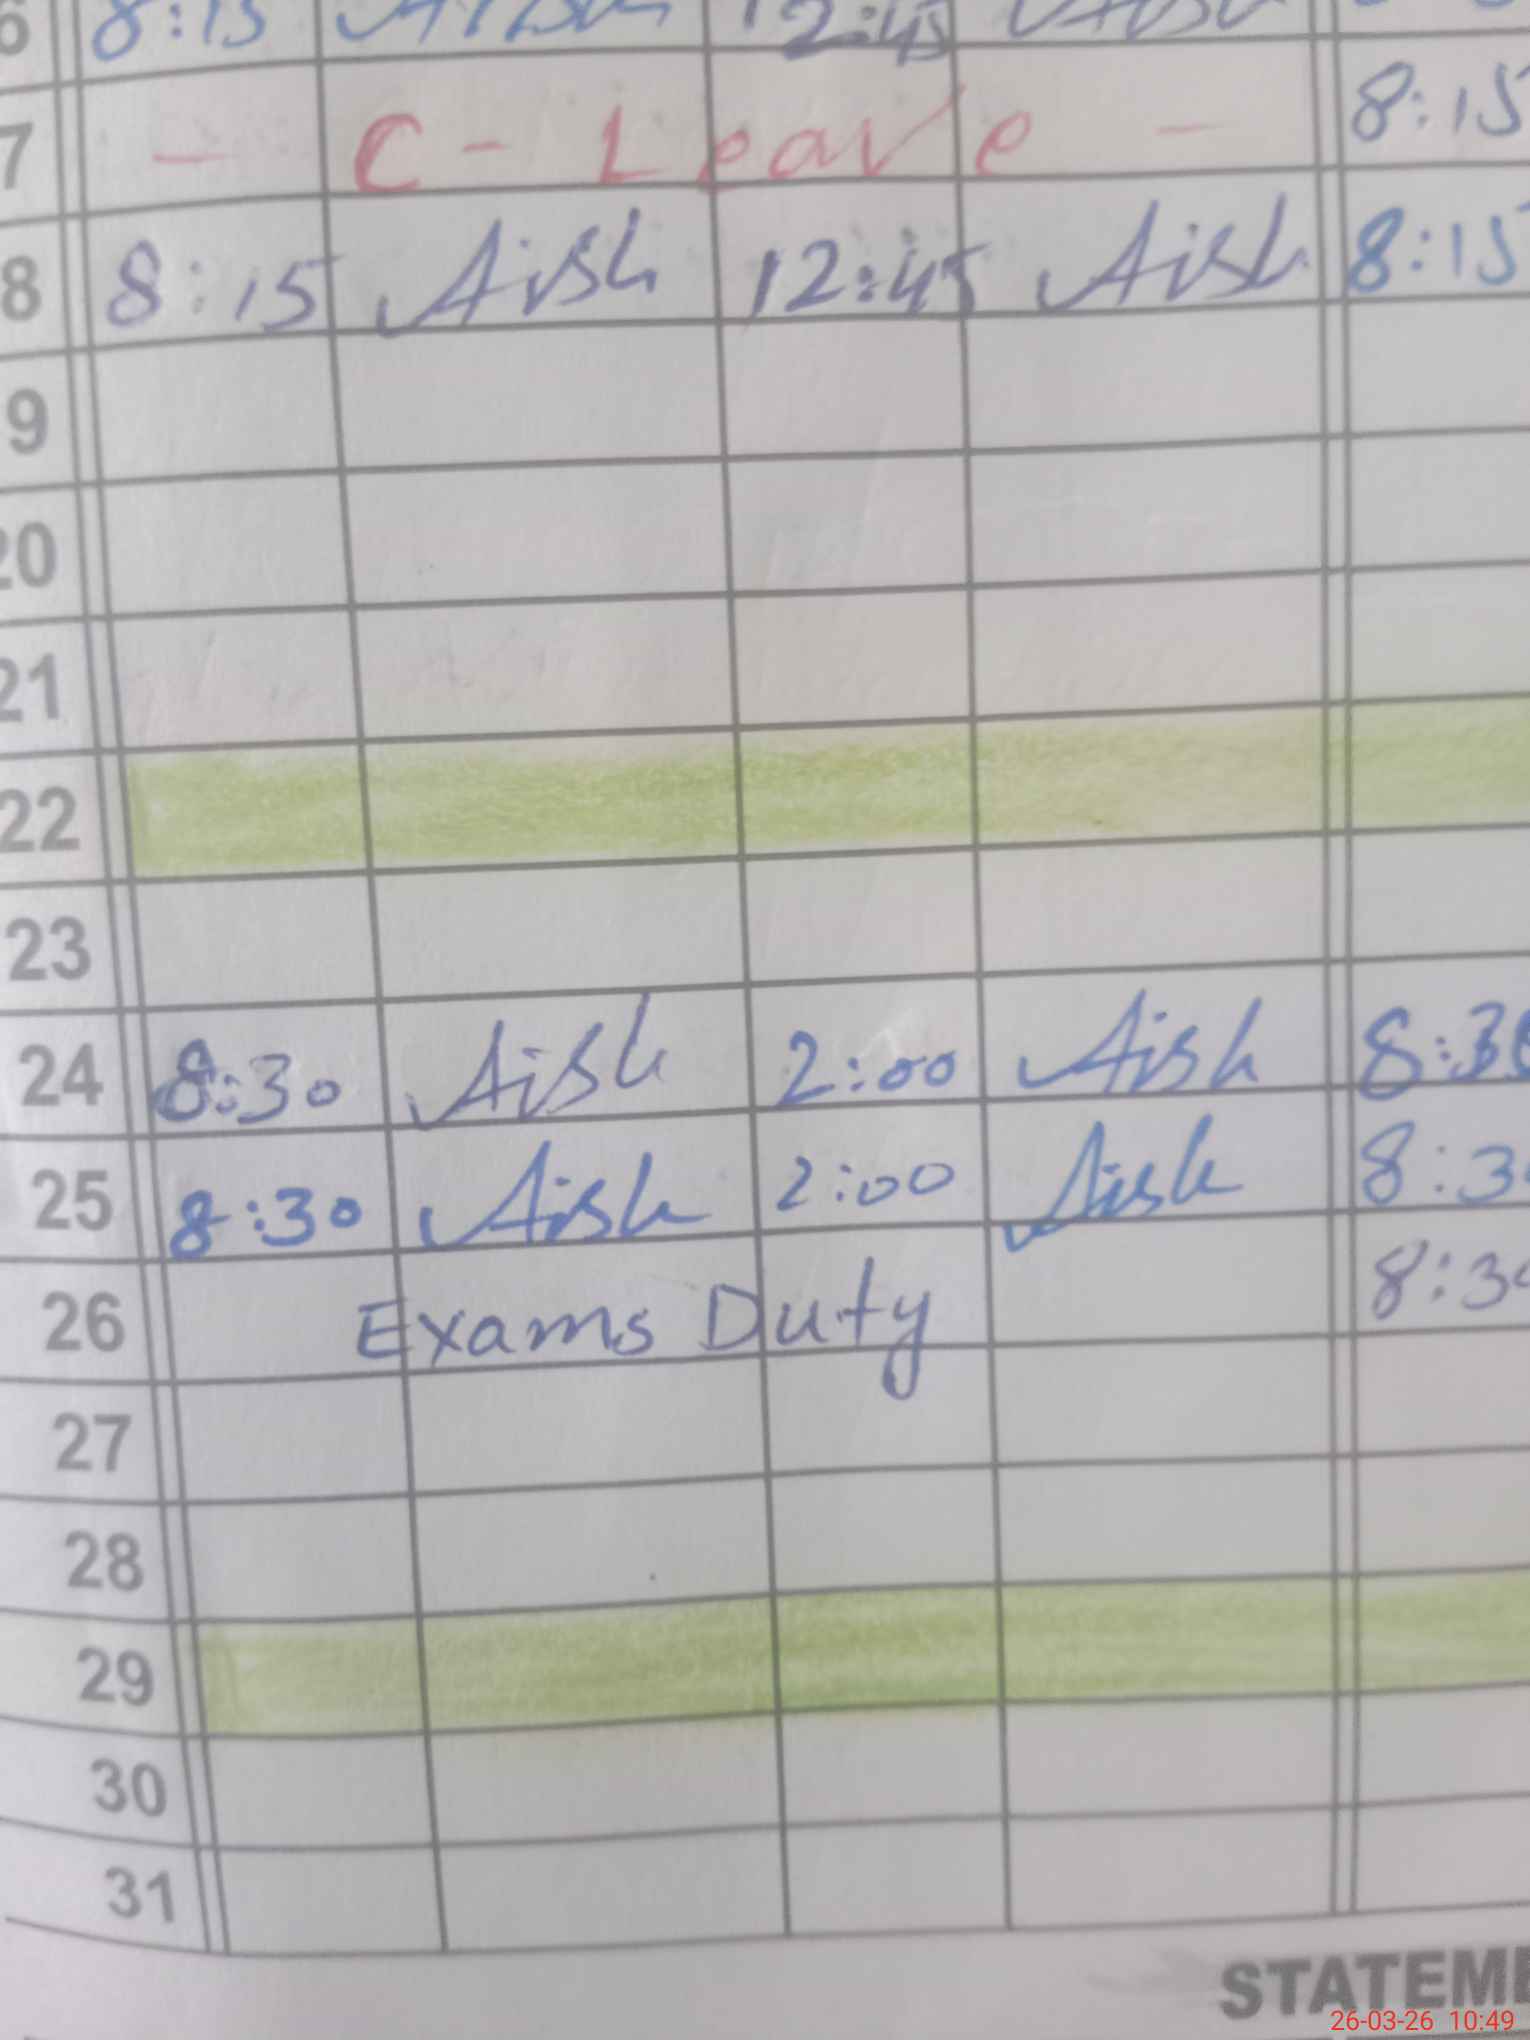 6 8:15 12:45
7 - C - Leave - 8:15
8 8:15 Aish 12:45 Aish 8:15
9
20
21
22
23
24 8:30 Aish 2:00 Aish 8:30
25 8:30 Aish 2:00 Aish 8:3
26 Exams Duty 8:3
27
28
29
30
31
STATEME
26-03-26 10:49